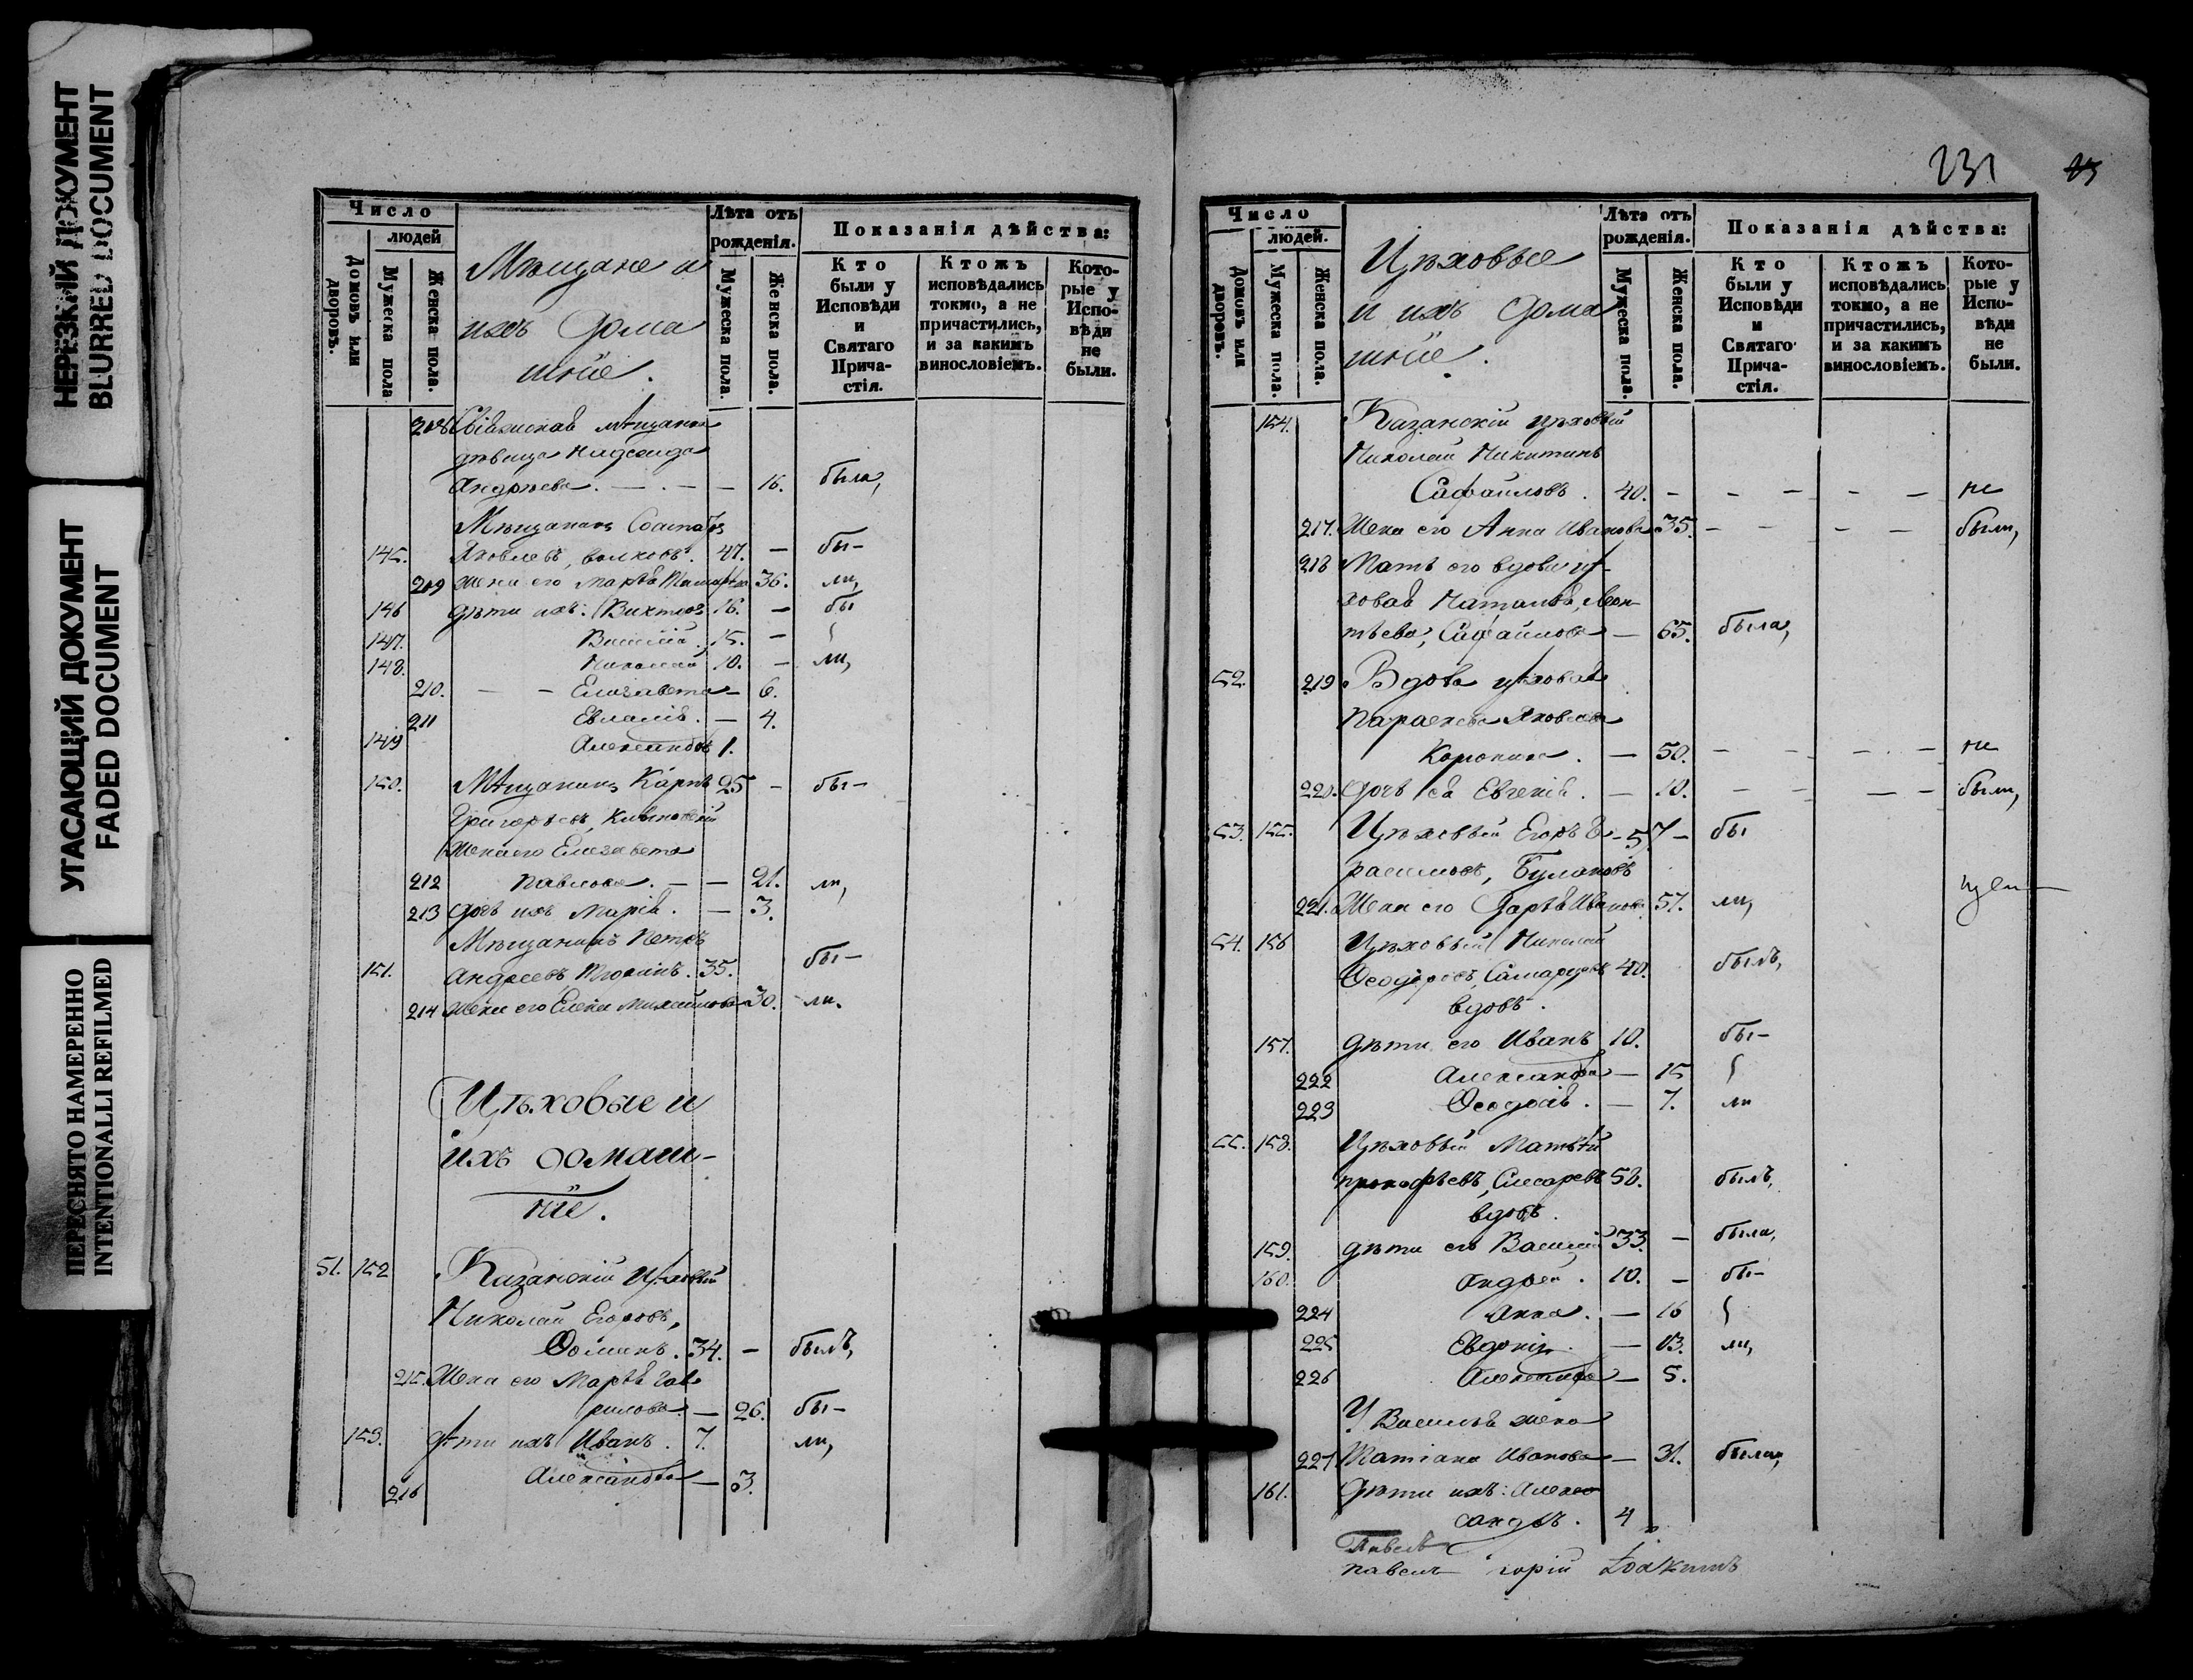 НЕРЕЗКИЙ ДОКУМЕНТ
BLURRED DOCUMENT
УГАСАЮЩИЙ ДОКУМЕНТ
FADED DOCUMENT
ПЕРЕСНЯТО НАМЕРЕННО
INTENTIONALLI REFILMED
Число
людей
Домовъ или дворовъ.
Мужеска пола
Женска пола.
Мѣщане и
ихъ дома
шніе.
Лѣта отъ
рожденія.
Мужеска пола.
Женска пола.
Показанія дѣйства:
Кто
были у
Исповѣди
и
Святаго
Прича-
стія.
Ктожъ
исповѣдались
токмо, а не
причастились,
и за какимъ
винословіемъ.
Кото-
рые у
Испо-
вѣди
не
были.
208 мѣщанка
дѣвица Надежда
Андреева. — . — — 16. была,
Мѣщанинъ
145. Яковлевъ, Волковъ. 47. — бы-
209 жена его Марѳа 36. ли,
146 дѣти ихъ: Викторъ 16. — бы
147. Василій 15. —
148. Николай 10. — ли,
210. — — Елизавета — 6.
211 Евлампія. — 4.
149 Александръ 1.
150. Мѣщанинъ Карпъ 25 — бы-
Григорьевъ,
Жена его Елизавета
212 Павлова. — — 21. ли,
213 дочь ихъ Марія. — 3.
Мѣщанинъ Петръ
151. Андреевъ, 35. бы-
214 жена его Елена Михайлова 30. ли.
Цѣховые и
ихъ домаш-
ніе.
51. 152 Казанскій цѣховый
Николай Егоровъ,
Ѳоминъ. 34. — былъ,
215. Жена его Марѳа Гав
рилова. — 26. бы-
153. дѣти ихъ Иванъ. 7. ли,
216 Александра — 3.
231
Число
людей.
Домовъ или дворовъ.
Мужеска пола.
Женска пола.
Цѣховые
и ихъ дома
шніе.
Лѣта отъ
рожденія.
Мужеска пола.
Женска пола.
Показанія дѣйства:
Кто
были у
Исповѣди
и
Святаго
Прича-
стія.
Ктожъ
исповѣдались
токмо, а не
причастились,
и за какимъ
винословіемъ.
Кото-
рые у
Испо-
вѣди
не
были.
154. Казанскій цѣховый
Николай Никитинъ
Сафаиловъ. 40. — — — — — не
217. Жена его Анна Иванова 35. — — — — были,
218 Мать его вдова цѣ-
ховая Наталья Леон-
тьева, Сафаилова — 65. была,
52. 219 Вдова цѣховая
Параскева Яковлева
— 50. — — — — не
220. дочь ея Евгенія. — 10. — — — — были,
53. 155. Цѣховый Егоръ Ге- 57 — бы
расимовъ, Булановъ
221. Жена его Дарья Иванова 57. ли,
54. 156 Цѣховый Николай
Ѳеодоровъ, 40. былъ,
вдовъ.
157. дѣти его Иванъ 10. бы-
222 Александра — 15
223 Ѳеодосія. — 7. ли
55. 158. Цѣховый Матвѣй
Прокофьевъ, Слесаревъ 58. былъ,
вдовъ.
159. дѣти его Василій 33. — была,
160. Андрей. 10. — бы-
224 Анна. — 16
225 Евдокія. — 13. ли,
226 Александра — 5.
У Василья жена
227 Татіана Иванова — 31. была,
161. Дѣти ихъ: Алек
сандръ. 4
Павелъ
Павелъ